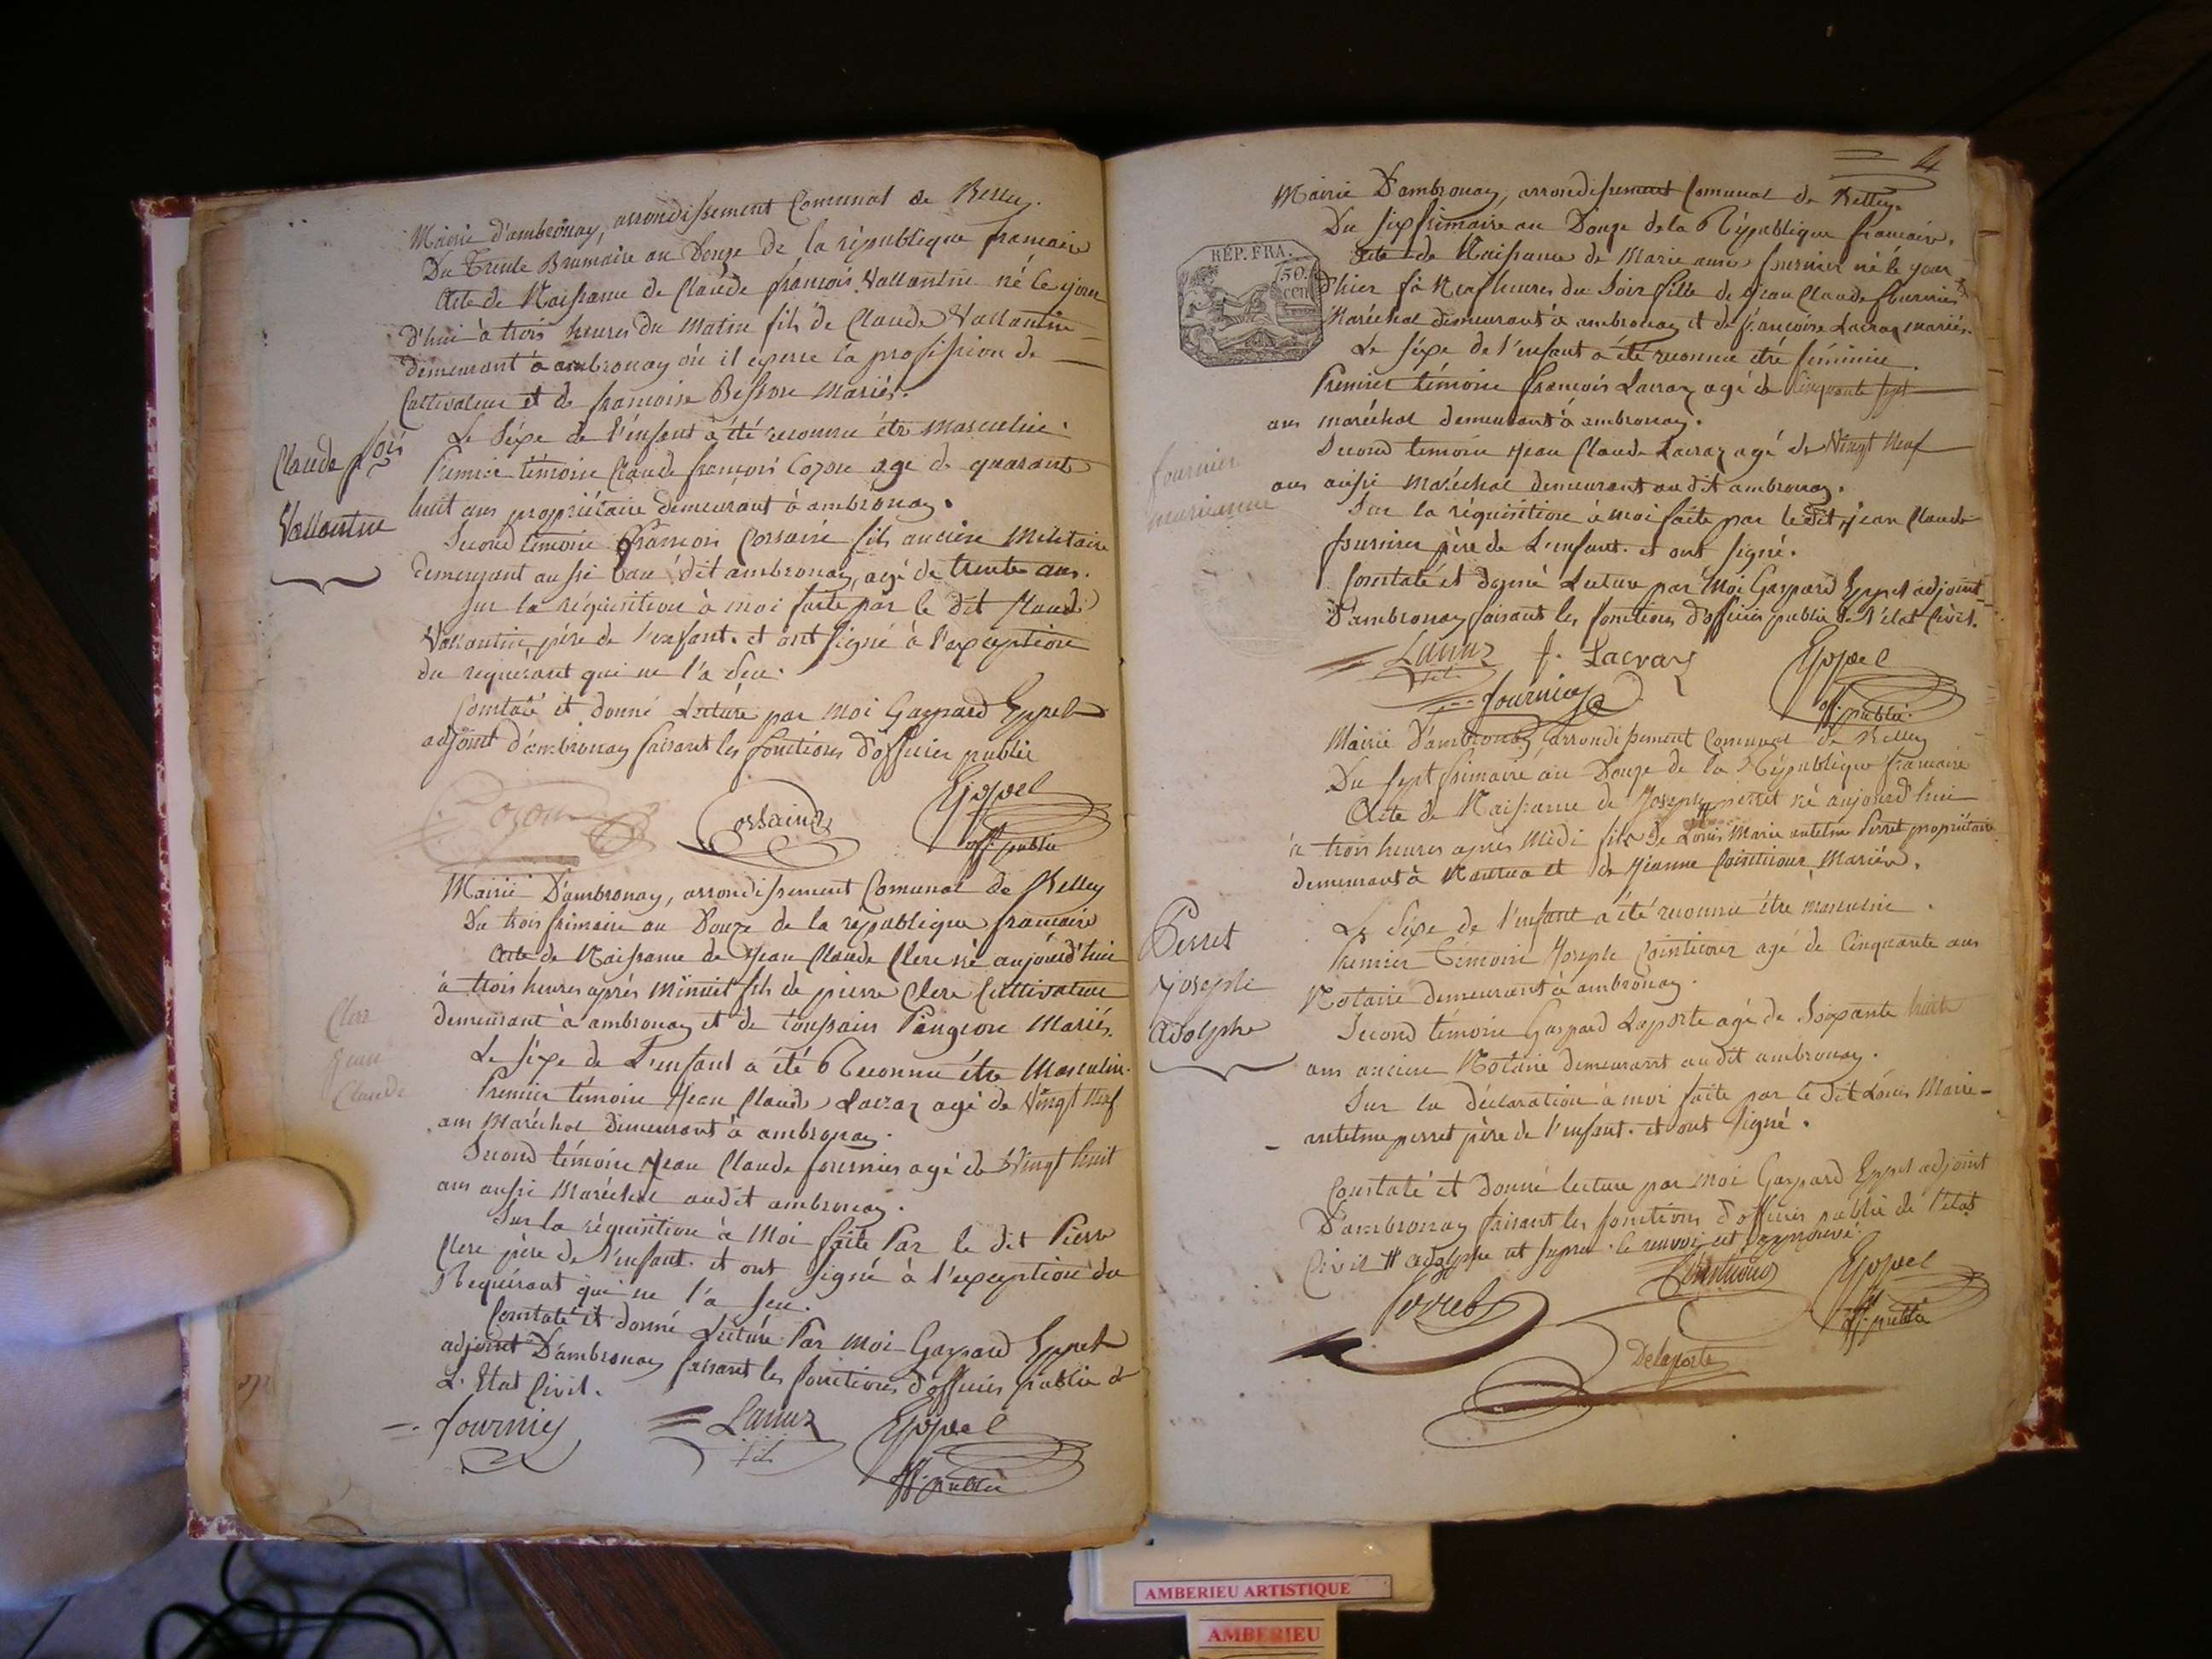 Mairie d'ambronay, arrondissement Comunal de Belley.
Du Trente Brumaire an Douze de la république francaise
Acte de Naissance de Claude françois Vallantin né le jour
d'hui à trois heures du matin fils de Claude Vallantin
demeurant à ambronay où il éxperse la profession de
Cultivateur et de francoise Besson Mariés.
Le Séxe de l'énfant à été reconnu étre masculin.
Claude fois
Vallantin
Premier témoin Claude françois Cozon agé de quarante
huit ans propriétaire demeurant à ambronay.
Second témoin françois Corsain fils ancien Militaire
demeurant aussi au dit ambronay, agé de trente ans.
Sur la réquisition à moi faite par le dit Claude
Vallantin père de l'enfant. et ont signé à l'exception
du requérant qui ne l'a Seu.
Constaté et donné Lecture par moi Gaspard Eppel
adjoint d'ambronay faisant les fonctions d'officier public
Cozon Corsain fils Eppel
off. public
Mairie D'ambronay, arrondissement Comunal de Belley
Du trois frimaire an Douze de la république francaise
Acte de Naissance de Jean Claude Clerc né aujourd'hui
à trois heures aprés Minuit fils de pierre Clerc Cultivateur
demeurant à ambronay et de toussain Pangeon Mariés.
Clerc
Jean
Claude
Le séxe de L'enfant a été Reconnu étre Masculin.
Premier témoin Jean Claude Lacraz agé de Vingt Neuf
ans Maréchal demeurant à ambronay.
Second témoin Jean Claude fournier agé de Vingt huit
ans aussi Maréchal audit ambronay.
Sur la réquisition à Moi faite Par le dit Pierre
Clerc père de l'enfant. et ont signé à l'exception du
Requérant qui ne l'a Seu.
Constaté et donné Lecture Par moi Gaspard Eppel
adjoint D'ambronay faisant les fonctions d'officier public de
L'Etat Civil.
fournier Lacraz Eppel
fils off. public
4
Mairie D'ambronay, arrondissement Comunal de Belley.
Du six frimaire an Douze de la République francaise.
RÉP. FRA.
50.
CEN
Acte de Naissance de Marie anne fournier né le jour
d'hier à Neuf heures du Soir fille de Jean Claude fournier
Maréchal demeurant à ambronay et de francoise Lacraz mariés.
Le séxe de l'enfant a été reconnu étre féminin.
Premier témoin françois Lacraz agé de Cinquante sept
ans maréchal demeurant à ambronay.
Second témoin Jean Claude Lacraz agé de Vingt Neuf
fournier
marianne
ans aussi Maréchal demeurant au dit ambronay.
Sur la réquisition à moi faite par le dit Jean Claude
fournier père de L'enfant. et ont signé.
Constaté et donné Lecture par Moi Gaspard Eppel adjoint
D'ambronay faisant les fonctions d'officier public de l'état Civil.
Lacraz f. Lacraz Eppel
fils fournier off. public
Mairie D'ambronay arrondissement Comunal de Belley
Du sept frimaire an Douze de la République francaise
Acte de Naissance de Joseph # perret né aujourd'hui
à trois heures aprés Midi fils de Louis Marie antelme Perret propriétaire
demeurant à Nantua et de Jeanne Cointicour Mariés.
Le Séxe de l'enfant a été reconnu étre masculin.
Perret
joseph
adolphe
Premier Témoin Joseph Cointicour agé de Cinquante ans
Notaire demeurant à ambronay.
Second témoin Gaspard Laporte agé de Soixante huit
ans ancien Notaire demeurant audit ambronay.
Sur la déclaration à moi faite par le dit Louis Marie-
antelme perret père de l'enfant. et ont signé.
Constaté et donné lecture par moi Gaspard Eppel adjoint
D'ambronay faisant les fonctions d'officier public de l'état
Civil # adolphe est supra. le renvoi est approuvé.
Perret Eppel
off. public
Delaporte
AMBERIEU ARTISTIQUE
AMBERIEU